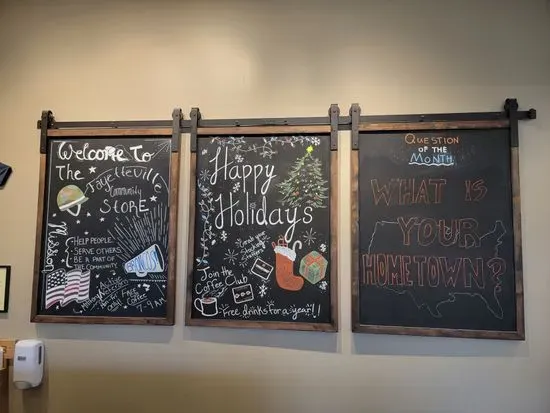 Welcome To
The
Fayetteville
Community
STORE
Mission
HELP PEOPLE
SERVE OTHERS
BE A PART
OF THE COMMUNITY
Coffee
7-9 AM
Happy
Holidays
Join the
Coffee Club
Free drinks for a year!!
QUESTION
OF THE
MONTH
WHAT IS
YOUR
HOMETOWN?